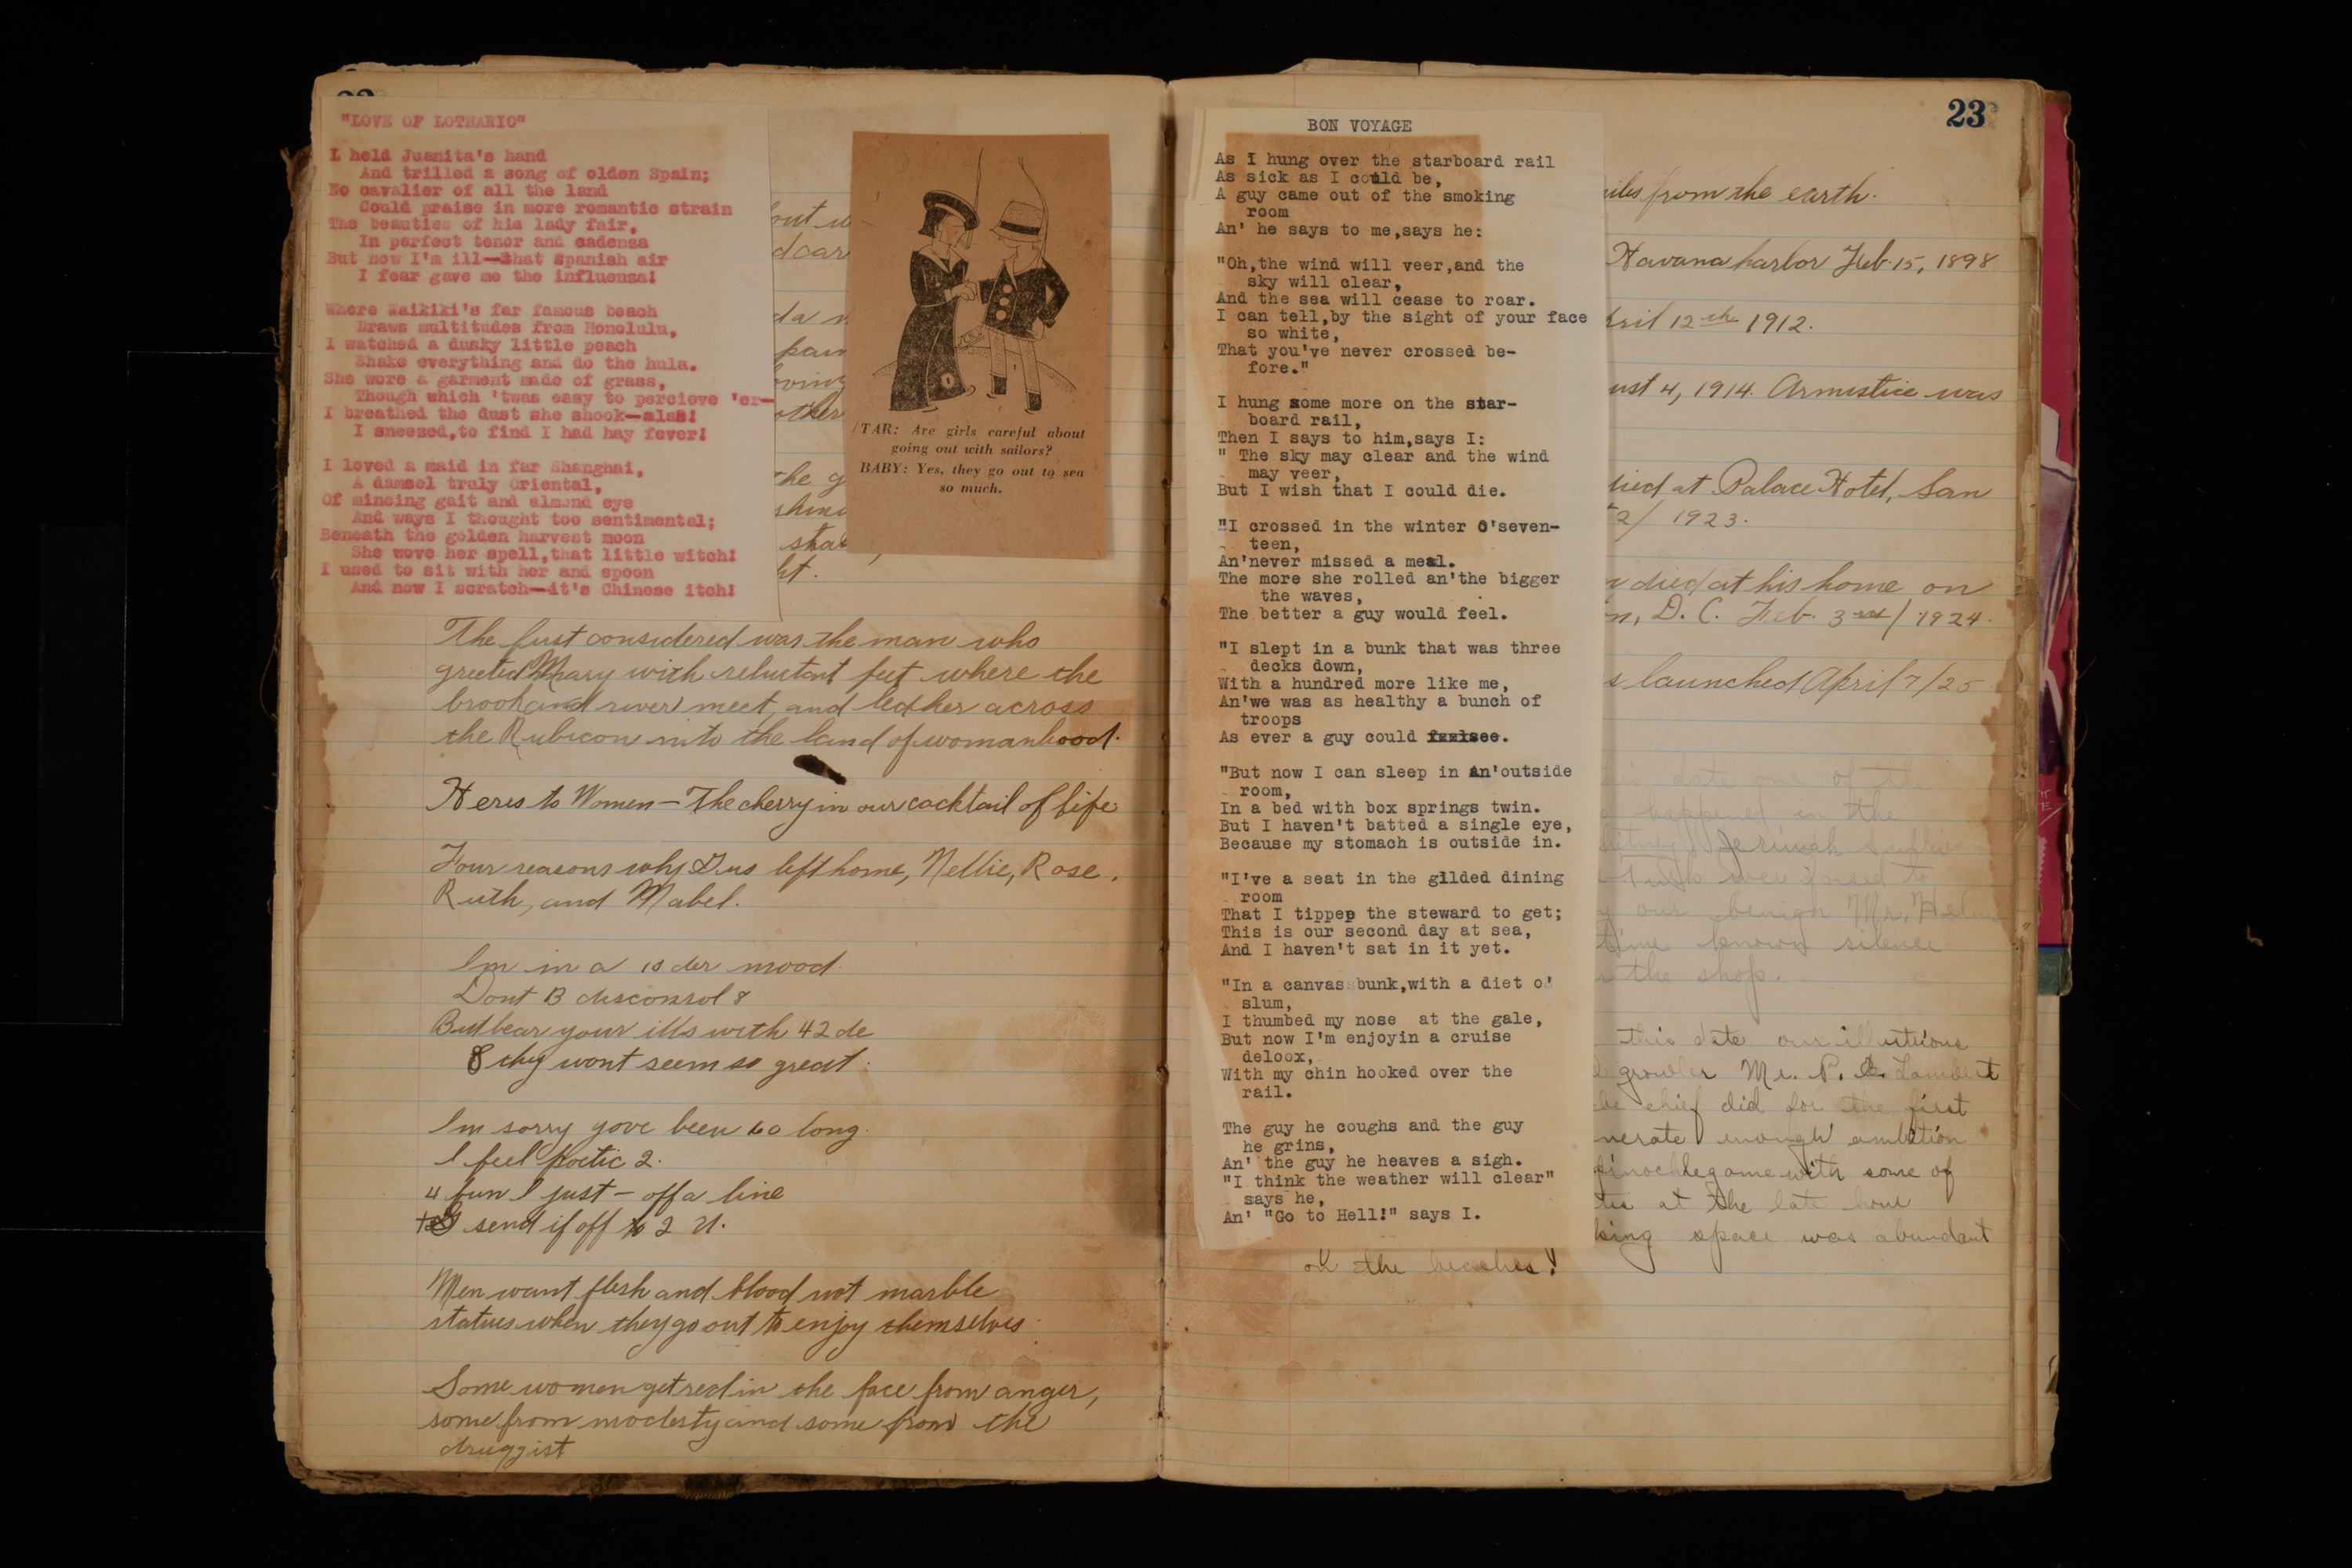 "LOVE OF LOTHARIO"
I held Juanita's hand
And trilled a song of olden Spain;
No cavalier of all the land
Could praise in more romantic strain
The beauties of his lady fair,
In perfect tenor and cadenza
But now I'm ill—that Spanish air
I fear gave me the influenza!
Where Waikiki's far famous beach
Draws multitudes from Honolulu,
I watched a dusky little peach
Shake everything and do the hula.
She wore a garment made of grass,
Though which 'twas easy to percieve 'er—
I breathed the dust she shook—alas!
I sneezed,to find I had hay fever!
I loved a maid in far Shanghai,
A damsel truly Oriental,
Of mincing gait and almond eye
And ways I thought too sentimental;
Beneath the golden harvest moon
She wove her spell,that little witch!
I used to sit with her and spoon
And now I scratch—it's Chinese itch!
TAR: Are girls careful about
going out with sailors?
BABY: Yes, they go out to sea
so much.
The first considered was the man who
greeted Mary with reluctant feet where the
brook and river meet, and led her across
the Rubicon into the land of womanhood.
Heres to Women — The cherry in our cocktail of life
Four reasons why Gus left home, Nellie, Rose.
Ruth, and Mabel.
Im in a 10 der mood.
Dont B disconsol 8
But bear your ills with 42 de
& they wont seem so great.
Im sorry yove been so long.
I feel poetic 2.
4 fun I just — off a line
send if off to 2 U.
Men want flesh and blood not marble
statues when they go out to enjoy themselves.
Some women get red in the face from anger,
some from modesty and some from the
druggist
23
BON VOYAGE
As I hung over the starboard rail
As sick as I could be,
A guy came out of the smoking
room
An' he says to me,says he:
"Oh,the wind will veer,and the
sky will clear,
And the sea will cease to roar.
I can tell,by the sight of your face
so white,
That you've never crossed be-
fore."
I hung some more on the star-
board rail,
Then I says to him,says I:
" The sky may clear and the wind
may veer,
But I wish that I could die.
"I crossed in the winter O'seven-
teen,
An'never missed a meal.
The more she rolled an'the bigger
the waves,
The better a guy would feel.
"I slept in a bunk that was three
decks down,
With a hundred more like me,
An'we was as healthy a bunch of
troops
As ever a guy could see.
"But now I can sleep in an'outside
room,
In a bed with box springs twin.
But I haven't batted a single eye,
Because my stomach is outside in.
"I've a seat in the gilded dining
room
That I tipped the steward to get;
This is our second day at sea,
And I haven't sat in it yet.
"In a canvas bunk,with a diet o'
slum,
I thumbed my nose at the gale,
But now I'm enjoyin a cruise
deloox,
With my chin hooked over the
rail.
The guy he coughs and the guy
he grins,
An' the guy he heaves a sigh.
"I think the weather will clear"
says he,
An' "Go to Hell!" says I.
from the earth.
Havana harbor Feb. 15, 1898
12th 1912.
4, 1914. Armistice was
died at Palace Hotel, San
2/ 1923.
died at his home on
D. C. Feb. 3rd/ 1924.
launched April 7/25
date one of the
happened in the
were forced to
our benign Mr.
time known silence
the shop.
this date our illustrious
growler Mr. P. Lambert
chief did for the first
enough ambition
pinochle game with some of
at the late hour
space was abundant
on the beaches!